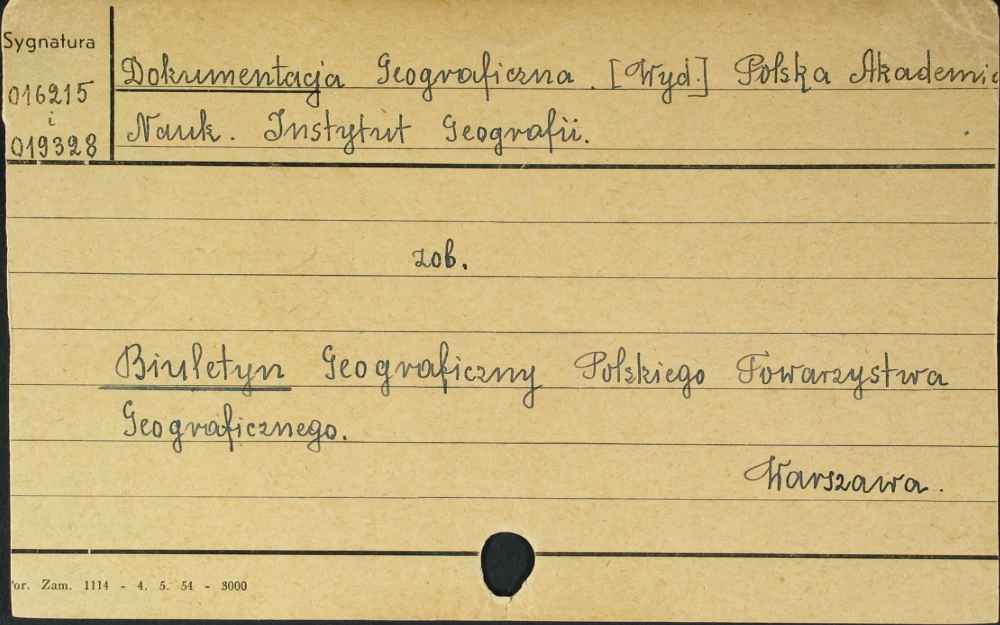 Sygnatura
016215
i
019328
Dokumentacja Geograficzna. [Wyd.] Polska Akademia
Nauk. Instytut Geografii.
zob.
Biuletyn Geograficzny Polskiego Towarzystwa
Geograficznego.
Warszawa.
or. Zam. 1114 - 4. 5. 54 - 3000